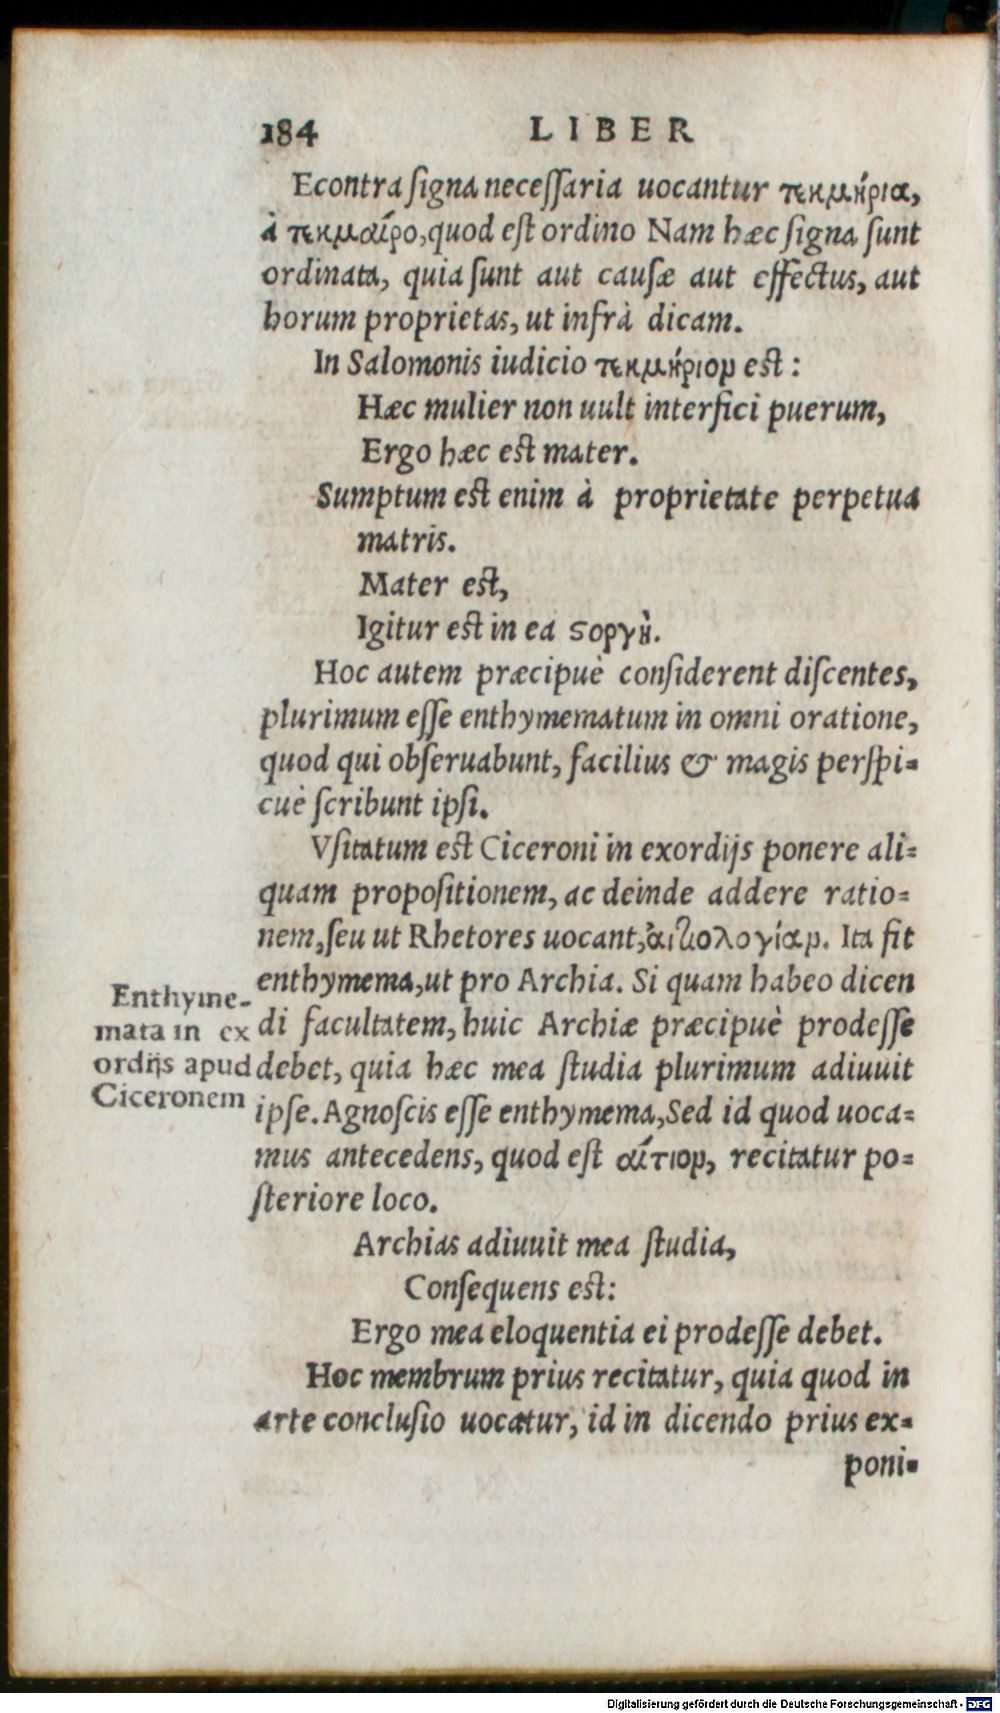 184 LIBER
Econtra ſigna neceſſaria uocantur τεκμήρια,
à τεκμαίρο, quod eſt ordino Nam hæc ſigna ſunt
ordinata, quia ſunt aut cauſæ aut effectus, aut
horum proprietas, ut infrà dicam.
In Salomonis iudicio τεκμήριον eſt:
Hæc mulier non uult interfici puerum,
Ergo hæc eſt mater.
Sumptum eſt enim à proprietate perpetua
matris.
Mater eſt,
Igitur eſt in ea ϛοργὴ.
Hoc autem præcipuè conſiderent diſcentes,
plurimum eſſe enthymematum in omni oratione,
quod qui obſeruabunt, facilius & magis perſpi=
cuè ſcribunt ipſi.
Vſitatum eſt Ciceroni in exordijs ponere ali=
quam propoſitionem, ac deinde addere ratio=
nem, ſeu ut Rhetores uocant, ἀιτιολογίαν. Ita fit
enthymema, ut pro Archia. Si quam habeo dicen
di facultatem, huic Archiæ præcipuè prodeſſe
debet, quia hæc mea ſtudia plurimum adiuuit
ipſe. Agnoſcis eſſe enthymema, Sed id quod uoca=
mus antecedens, quod eſt αἴτιον, recitatur po=
ſteriore loco.
Enthyme-
mata in ex
ordijs apud
Ciceronem
Archias adiuuit mea ſtudia,
Conſequens eſt:
Ergo mea eloquentia ei prodeſſe debet.
Hoc membrum prius recitatur, quia quod in
arte concluſio uocatur, id in dicendo prius ex=
poni=
Digitalisierung gefördert durch die Deutsche Forschungsgemeinschaft - DFG